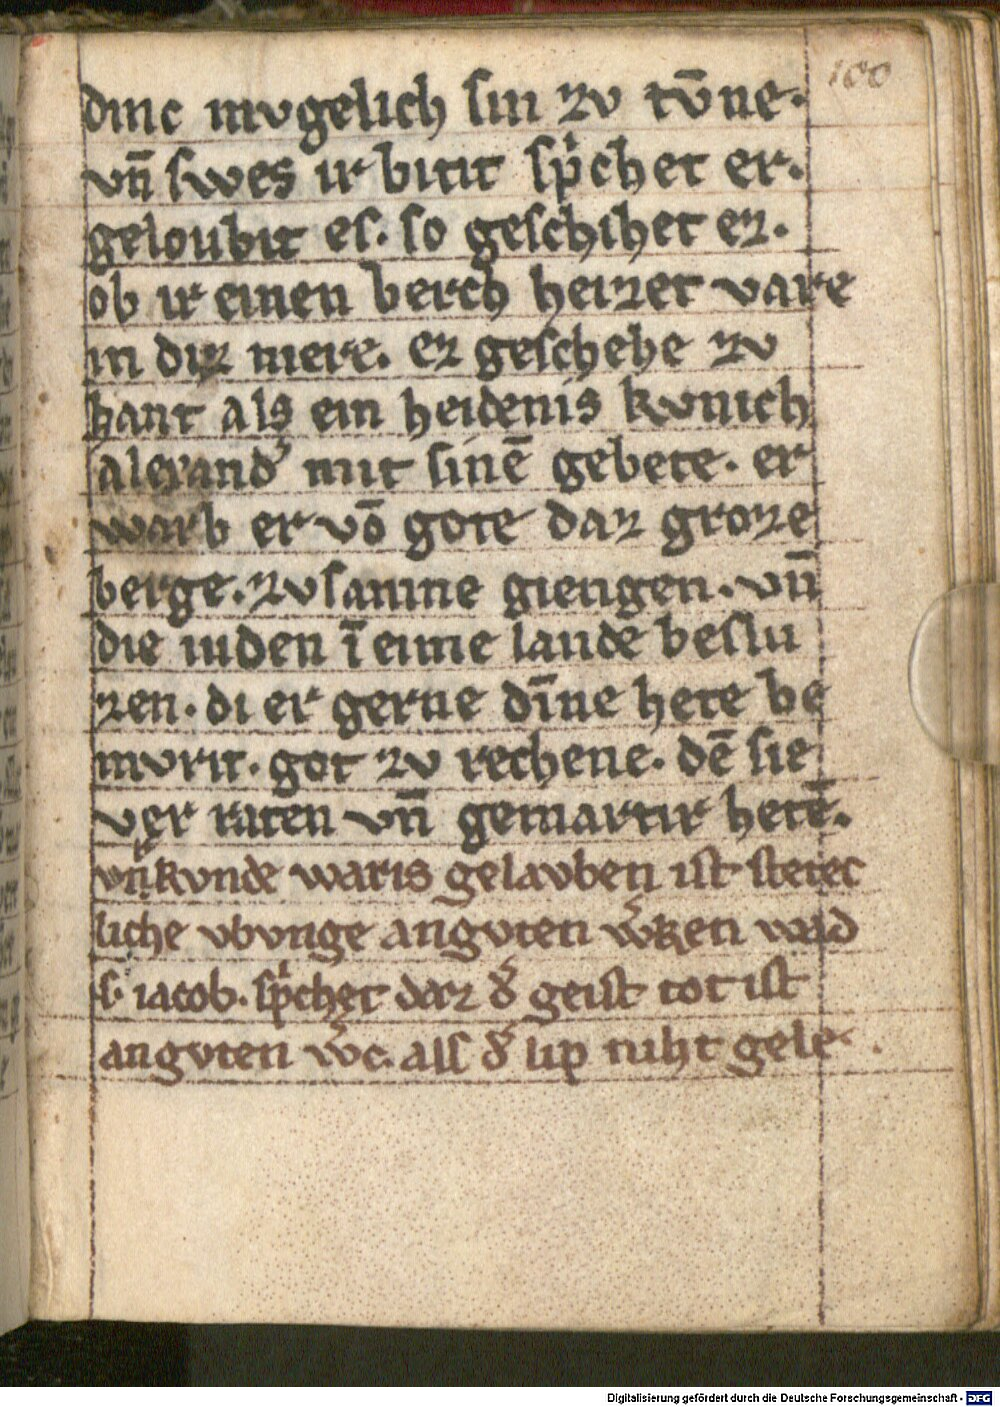 100
dinc mvgelich sin zv tv̄ne.
vn̄ swes ir bitit sp̍chet er.
geloubit es. so geschihet ez.
ob ir einen berch heizet vare
in diz mere. ez geschehe zv
hant als ein heidenis kvnich
alexand᾽ mit sinē gebete. er
warb er vō gote daz groze
berge. zvsamine giengen. vn̄
die iuden ī eime lande beslu
zen. di er gerne dīne hete be
mvrit. got zv rechene. dē sie
ver raten vn̄ gemartir hetē.
vn̄ kvnde waris gelavben ist stetec
liche vbvnge an gvten w̓ken wād
s. iacob. sp̍chet daz d̓ geist tot ist
an gvten w̓c. als d̓ lip niht gele.
Digitalisierung gefördert durch die Deutsche Forschungsgemeinschaft - DFG